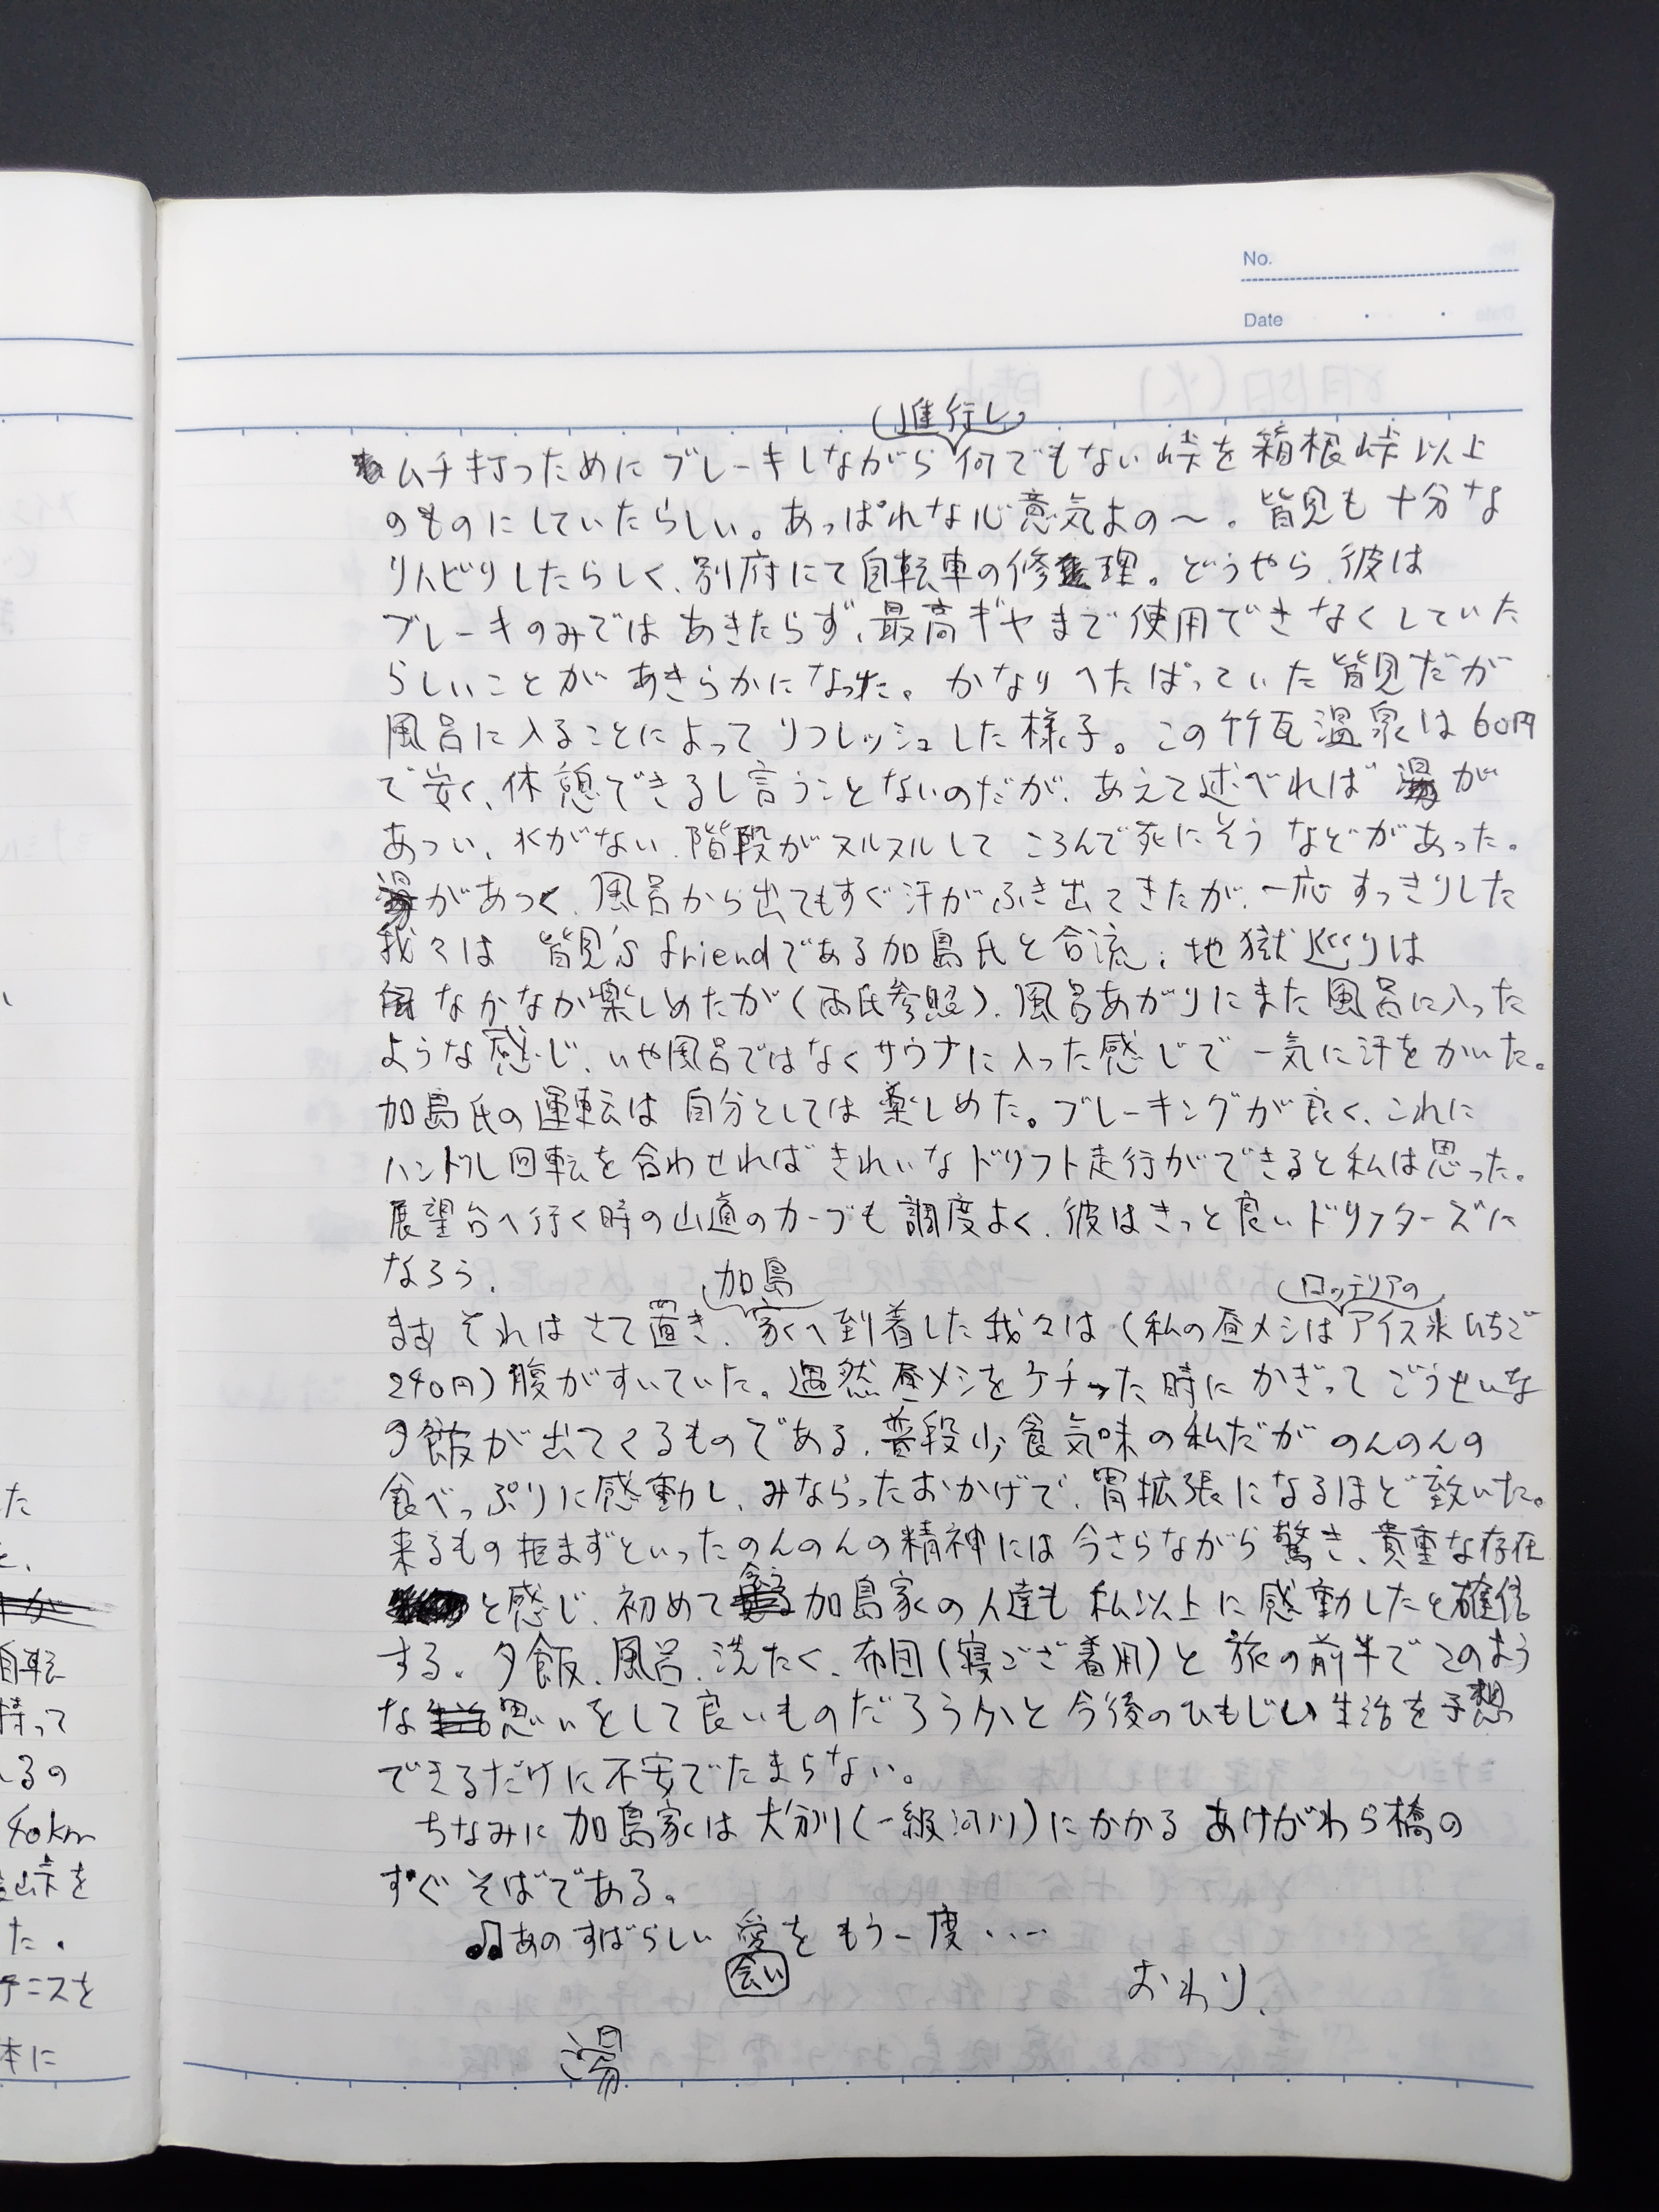 No.
Date
進行し
ムチ打つためにブレーキしながら何でもない峠を箱根峠以上
のものにしていたらしい。あっぱれな心意気よの〜。皆見も十分な
リハビリしたらしく、別府にて自転車の修理。どうやら、彼は
ブレーキのみではあきたらず、最高ギヤまで使用できなくしていた
らしいことがあきらかになった。かなりへたばっていた皆見だが
風呂に入ることによってリフレッシュした様子。この竹瓦温泉は60円
で安く、休憩できるし言うことないのだが、あえて述べれば湯が
あつい、水がない、階段がヌルヌルしてころんで死にそうなどがあった。
湯があつく、風呂から出てもすぐ汗がふき出てきたが、一応すっきりした
我々は 皆見's friendである加島氏と合流;地獄巡りは
なかなか楽しめたが(両氏参照)、風呂あがりにまた風呂に入った
ような感じ、いや風呂ではなくサウナに入った感じで一気に汗をかいた。
加島氏の運転は自分としては楽しめた。ブレーキングが良く、これに
ハンドル回転を合わせればきれいなドリフト走行ができると私は思った。
展望台へ行く時の山道のカーブも調度よく、彼はきっと良いドリフターズに
なろう。
加島 ロッテリアの
まぁそれはさて置き、家へ到着した我々は(私の昼メシはアイス氷いちご
240円)腹がすいていた。偶然昼メシをケチった時にかぎってごうせいな
夕飯が出てくるものである、普段少食気味の私だがのんのんの
食べっぷりに感動し、みならったおかげで、胃拡張になるほど致いた。
来るもの拒まずといったのんのんの精神には今さらながら驚き、貴重な存在
と感じ、初めて会う加島家の人達も私以上に感動したと確信
する。夕飯、風呂、洗たく、布団(寝ござ着用)と旅の前半でこのよう
な思いをして良いものだろうかと今後のひもじい生活を予想
できるだけに不安でたまらない。
ちなみに加島家は大分川(一級河川)にかかるあけがわら橋の
すぐそばである。
♫あのすばらしい愛をもう一度・・・
会い
おわり.
湯
た
自転
持って
るの
40km
峠を
た.
テニスを
本に